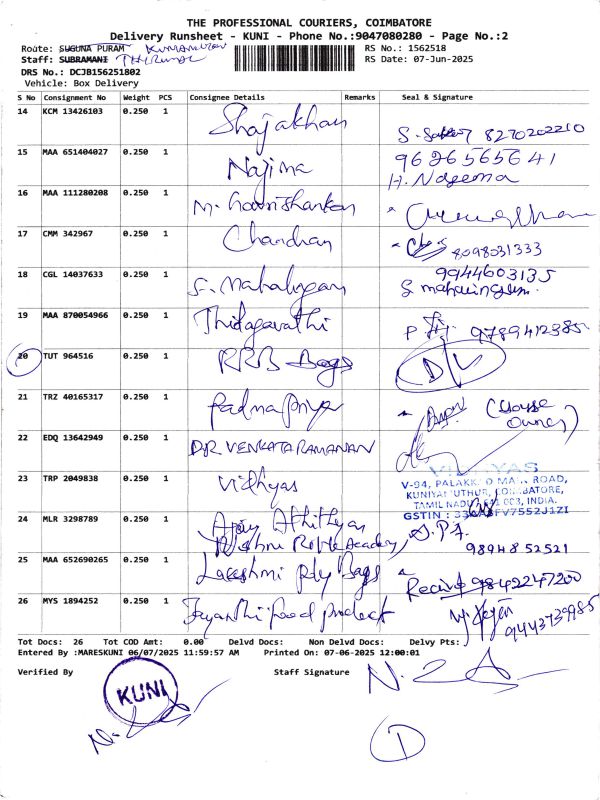 THE PROFESSIONAL COURIERS, COIMBATORE
Delivery Runsheet - KUNI - Phone No.:9047080280 - Page No.:2
Route: SUGUNA PURAM
RS No.: 1562518
Staff: SUBRAMANI
RS Date: 07-Jun-2025
DRS No.: DCJB156251802
Vehicle: Box Delivery
S No Consignment No Weight PCS Consignee Details Remarks Seal & Signature
14 KCM 13426103 0.250 1 Shajakhan 8270202210
15 MAA 651404027 0.250 1 Najima 9626565641
H. Naseema
16 MAA 111280208 0.250 1
17 CMM 342967 0.250 1 Chandran 8098031333
18 CGL 14037633 0.250 1 S. Mahalingam 9944603135
S mahalingam.
19 MAA 870054966 1 0.250 9789412385
20 TUT 964516 0.250 1 RRB Bags D/L
21 TRZ 40165317 0.250 1 Padma Priya (House Owner)
22 EDQ 13642949 0.250 1 DR VENKATARAMANAN
23 TRP 2049838 0.250 1 Vidhyas
V-94, PALAKKAD MAIN ROAD,
KUNIYAMUTHUR, COIMBATORE,
TAMIL NADU 641 003, INDIA.
GSTIN :
24 MLR 3298789 0.250 1 9894852521
25 MAA 652690265 0.250 1 Lakshmi Ply Bags 9842247200
26 MYS 1894252 0.250 1 Jayanthi food product 9443739985
Tot Docs: 26 Tot COD Amt: 0.00 Delvd Docs: Non Delvd Docs: Delvy Pts:
Entered By :MARESKUNI 06/07/2025 11:59:57 AM Printed On: 07-06-2025 12:00:01
Verified By Staff Signature
KUNI
1